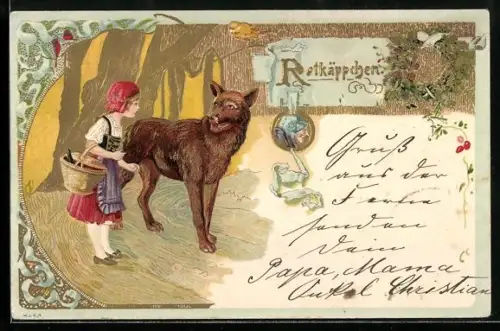 Rotkäppchen.
Gruß
aus der
Ferne
senden
Dein
Papa, Mama
Onkel Christian